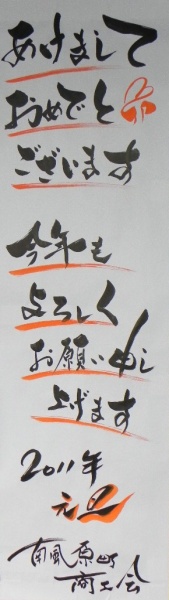 あけまして
おめでと
ございます
今年も
よろしく
お願い申し
上げます
2011年
元旦
南風原町
商工会